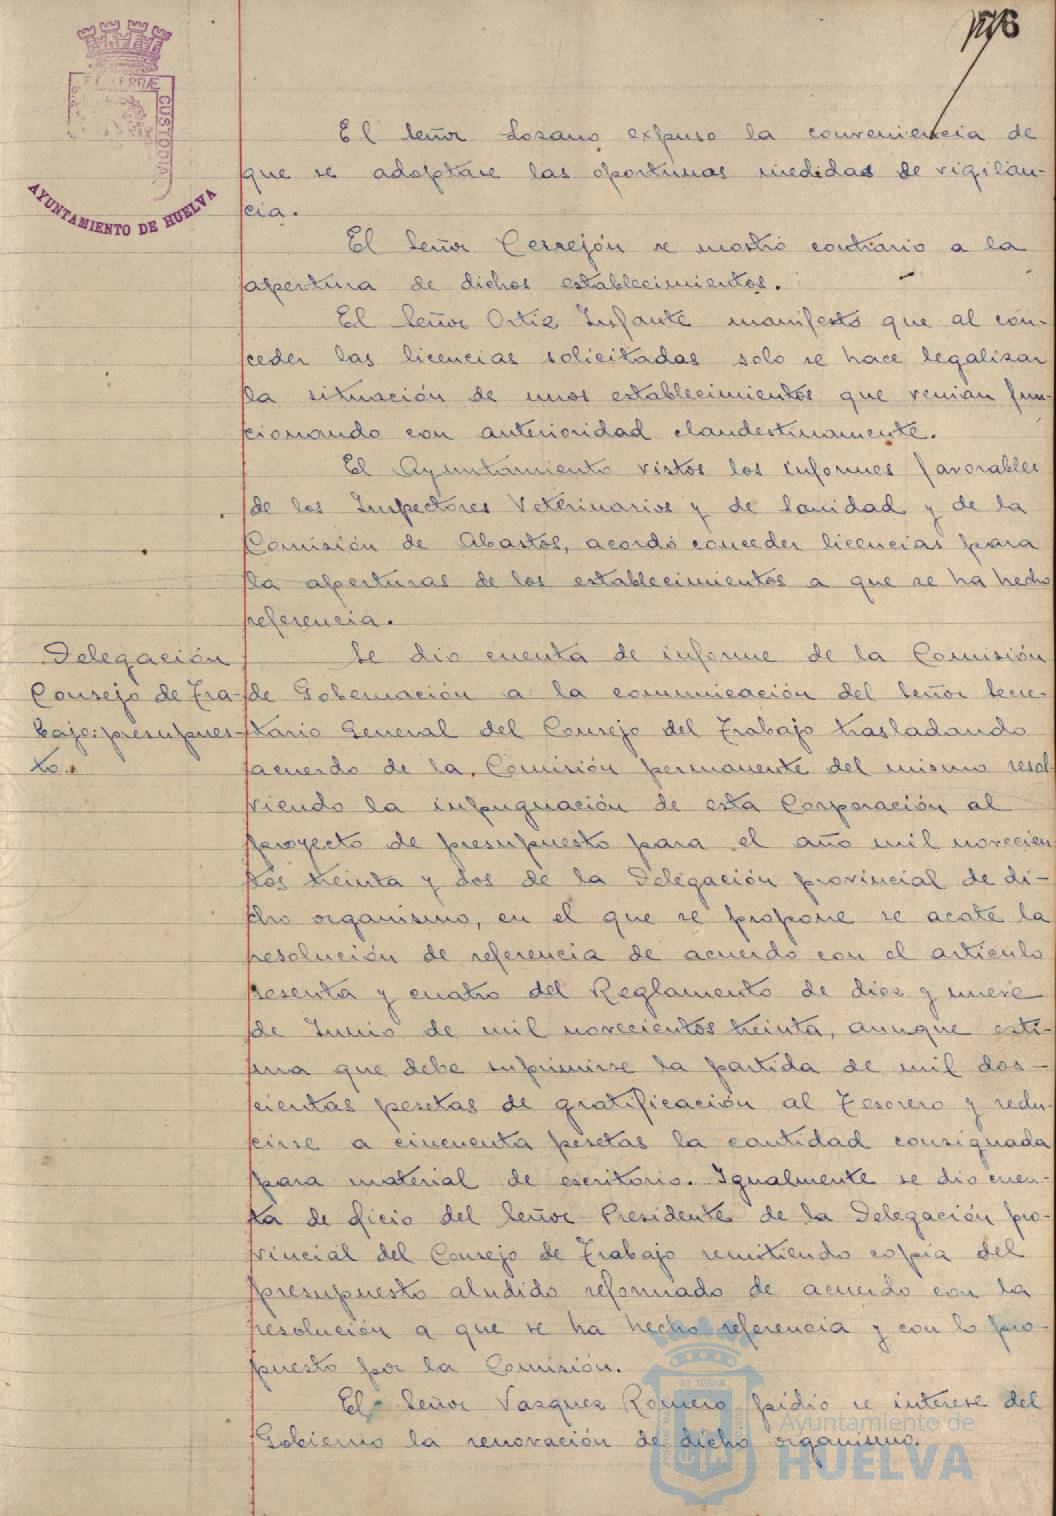 El Señor Lozano expuso la conveniencia de
que se adoptase las oportunas medidas de vigilan-
cia.
El Señor Cerrejón se mostró contrario a la
apertura de dichos establecimientos.
El Señor Ortiz Infante manifestó que al con-
ceder las licencias solicitadas solo se hace legalizar
la situación de unos establecimientos que venian fun-
cionando con anterioridad clandestinamente.
El Ayuntamiento vistos los informes favorables
de los Inspectores Veterinarios y de Sanidad y de la
Comisión de Abastos, acordó conceder licencias para
la aperturas de los establecimientos a que se ha hecho
referencia.
Delegación
Consejo de Tra-
bajo: presupues-
to.
Se dio cuenta de informe de la Comisión
de Gobernación a la comunicación del Señor Secre-
tario General del Consejo del Trabajo trasladando
acuerdo de la Comisión permanente del mismo resol-
viendo la impugnación de esta Corporación al
proyecto de presupuesto para el año mil novecien
tos treinta y dos de la Delegación provincial de di-
cho organismo, en el que se propone se acate la
resolución de referencia de acuerdo con el artículo
sesenta y cuatro del Reglamento de diez y nueve
de Junio de mil novecientos treinta, aunque esti-
ma que debe suprimirse la partida de mil dos-
cientas pesetas de gratificación al Tesorero y redu-
cirse a cincuenta pesetas la cantidad consignada
para material de escritorio. Igualmente se dio cuen-
ta de oficio del Señor Presidente de la Delegación pro-
vincial del Consejo de Trabajo remitiendo copia del
presupuesto aludido reformado de acuerdo con la
resolución a que se ha hecho referencia y con lo pro-
puesto por la Comisión.
El Señor Vazquez Romero pidió se interese del
Gobierno la renovación de dicho organismo.
CUSTODIA
AYUNTAMIENTO DE HUELVA
Ayuntamiento de
HUELVA